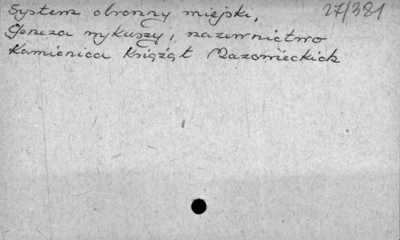 System obronny miejski, 27/381
Geneza wykuszy, nazewnictwo
Kamienica Książąt Mazowieckich